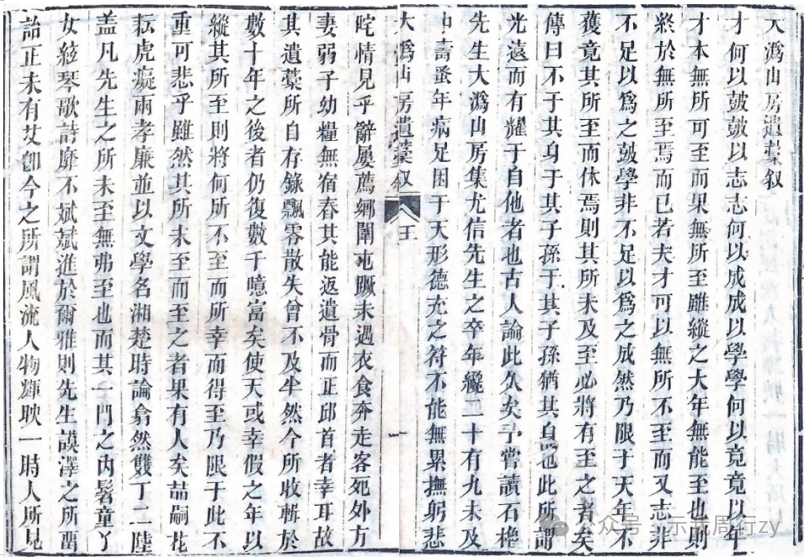 大潙山房遺藁叙
才何以皷皷以志志何以成成以學學何以竟竟以年
才本無所可至而果無所至雖縱之大年無能至也則
終於無所至焉而已若夫才可以無所不至而又志非
不足以爲之皷學非不足以爲之成然乃限于天年不
獲竟其所至而休焉則其所未及至必將有至之者矣
傳曰不于其身于其子孫于其子孫猶其身也此所謂
光遠而有耀于自他者也古人論此久矣予嘗讀石櫓
先生大潙山房集尤信先生之卒年纔二十有九未及
中壽蚤年病足困于天形德充之符不能無累撫躬悲
大潙山房遺藁叙
王
一
咤情見乎辭屢薦鄉闈屯蹶未遇衣食奔走客死外方
妻弱子幼糧無宿舂其能返遺骨而正邱首者幸耳故
其遺藁所自存錄飄零散失曾不及半然今所收輯於
數十年之後者仍復數千噫富矣使天或幸假之年以
縱其所至則將何所不至而所幸而得至乃限于此不
重可悲乎雖然其所未至而至之者果有人矣喆嗣花
耘虎癡兩孝廉並以文學名湘楚時論翕然雙丁二陸
盖凡先生之所未至無弗至也而其一門之内髫童丫
女絃琴歌詩靡不斌斌進於爾雅則先生謨澤之所畱
詒正未有艾卽今之所謂風流人物輝映一時人所見
公众号·示我周行zy